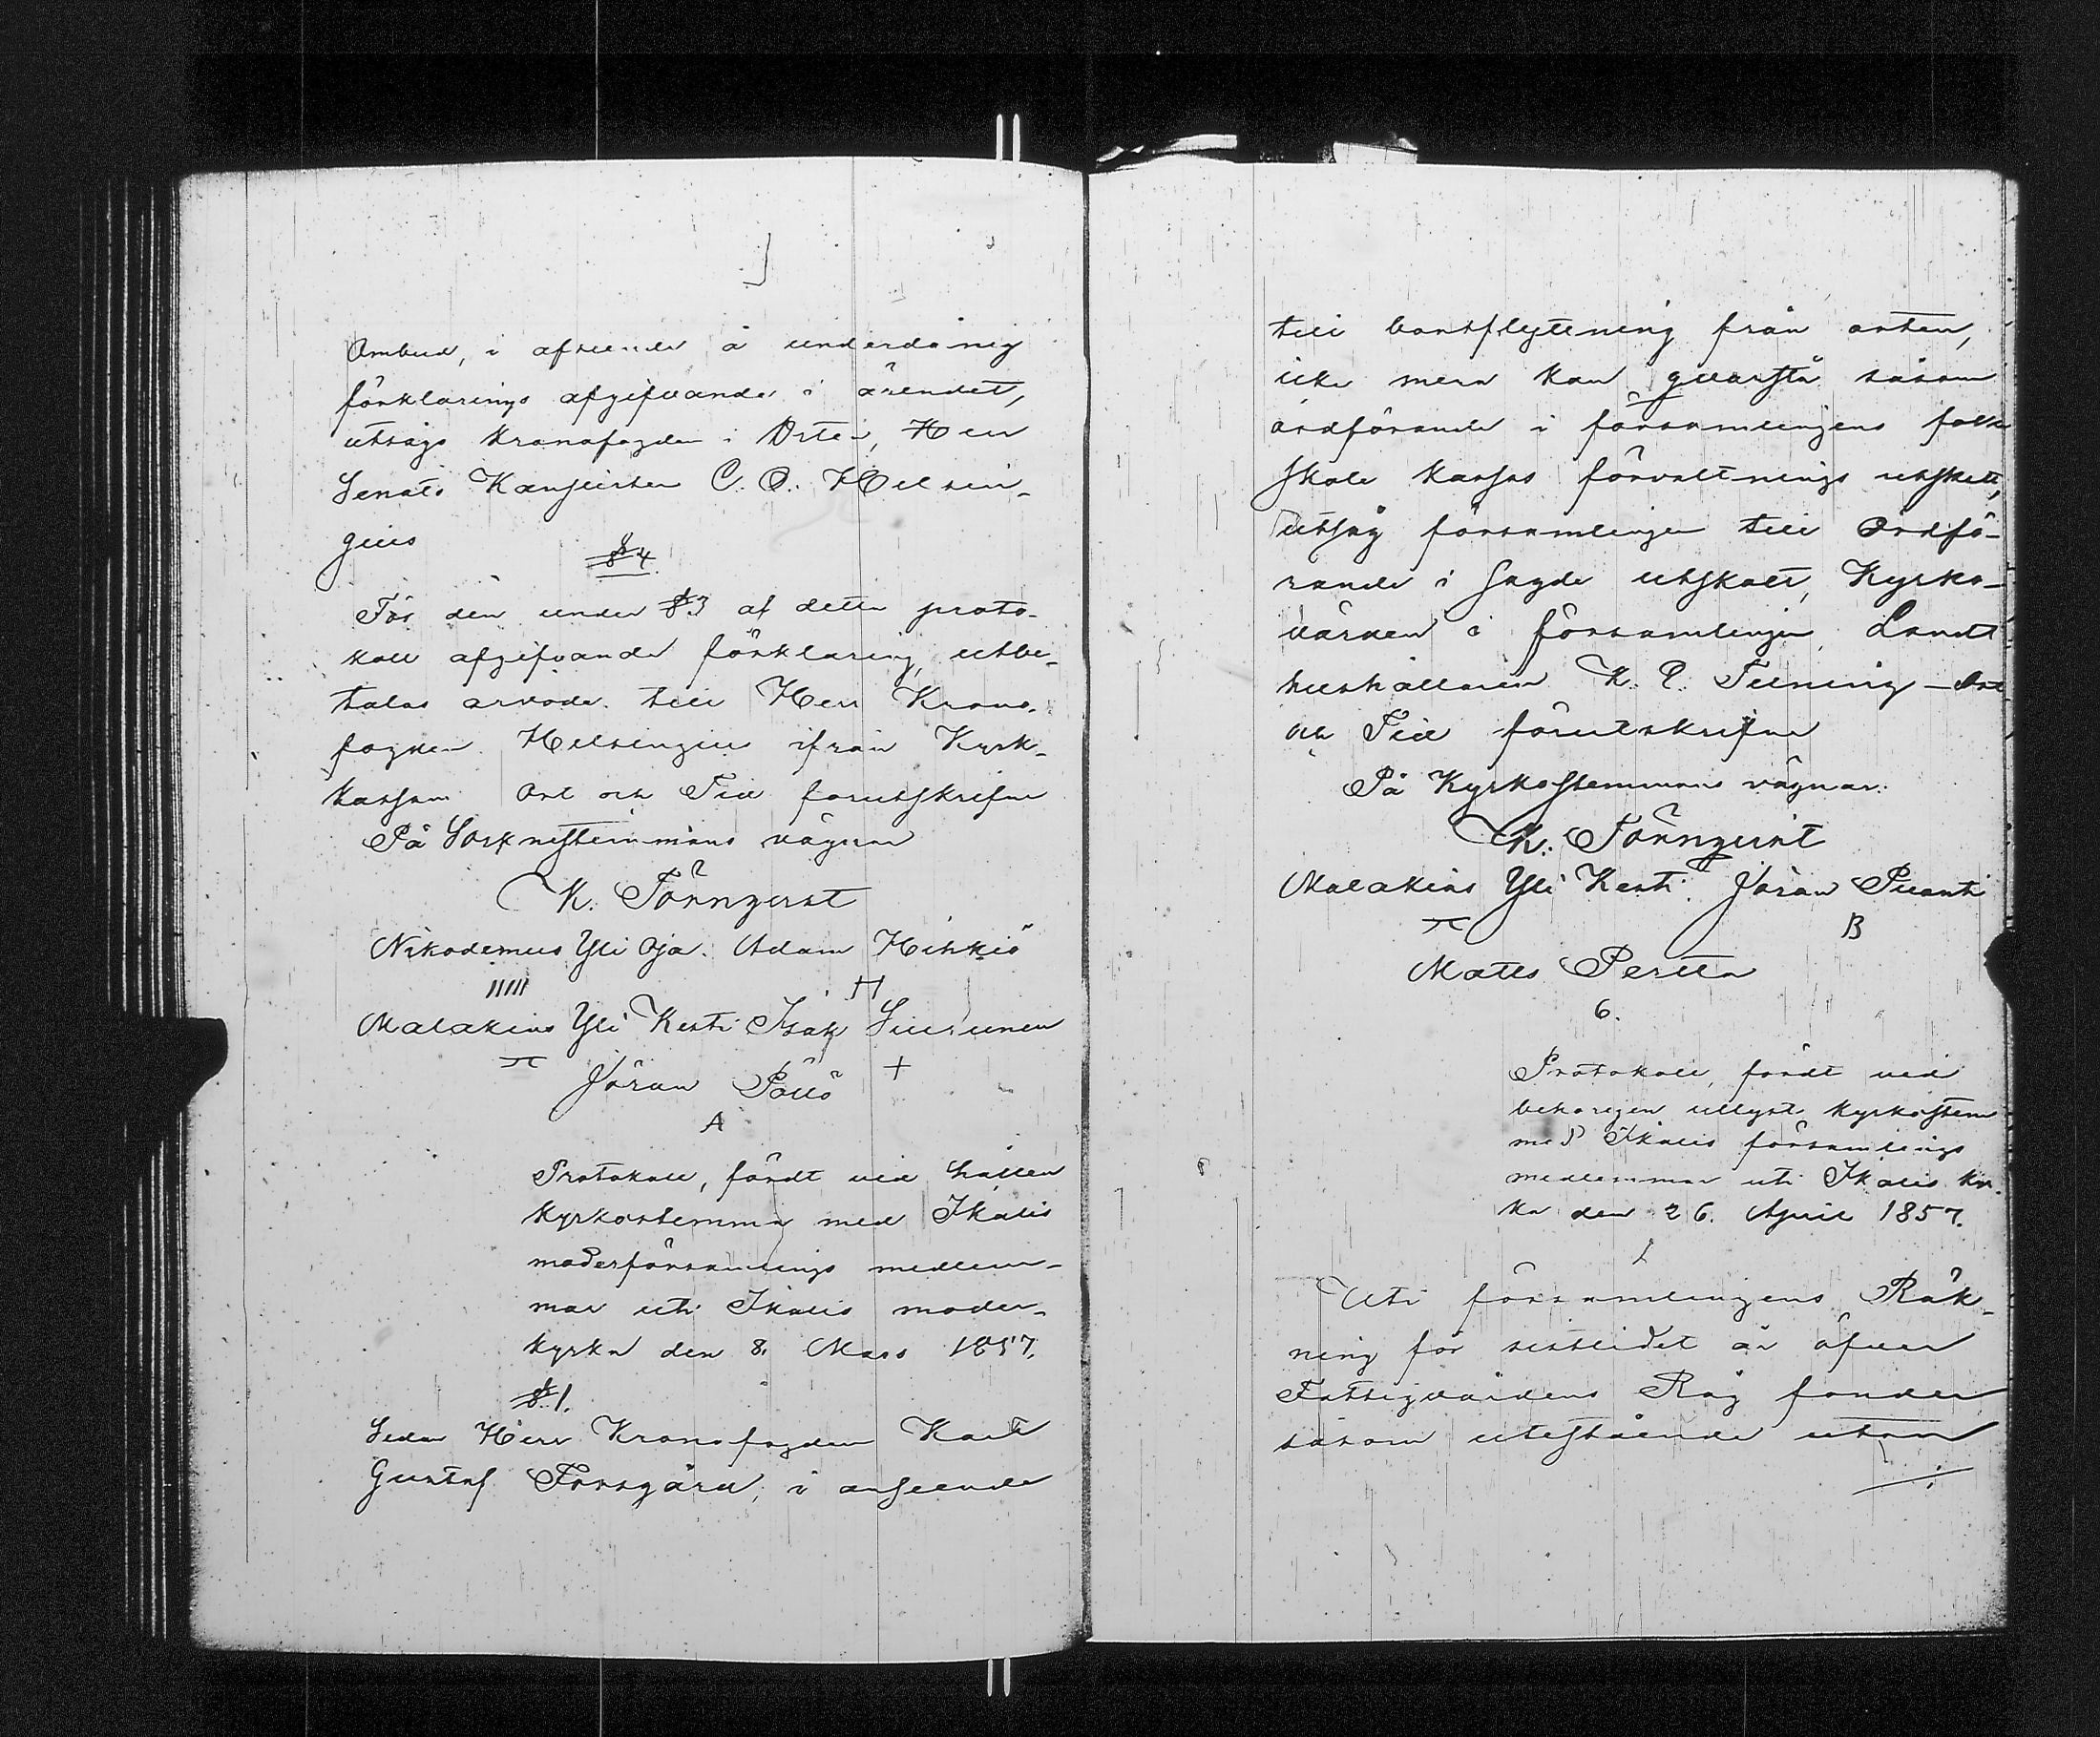 Ombud, i afseende å underdånig
förklarings afgifvande i ärendet,
utsågs Kronofogden i Orten, Herr
Senats Kanslisten C. O. Helsin-
gius
§ 4
För den under § 3 af detta proto-
koll afgifvande förklaring, utbe-
talas arvode till Herr Krono-
fogden Helsingius ifrån Kyrk-
kassan Ort och Tid förutskrifne
På Socknestemmans vägnar
K. Törnqvist
Nikodemus Yli Oja. Adam Hihkiö
///// H
Malakius Yli Kesti Isak Suurunen
Jöran Pöllö +
A
Protokoll, fördt vid hållen
kyrkostemma med Ikalis
moderförsamlings medlem-
mar uti Ikalis moder-
kyrka den 8. Mars 1857.
§ 1.
Sedan Herr Kronofogden Karl
Gustaf Forsgård, i anseende
till bortflyttning från orten,
icke mera kan qvarstå såsom
ordförande i församlingens folk
skole kassas förvaltnings utskott,
utsåg församlingen till Ordfö-
rande i sagde utskott, Kyrko-
värden i församlingen, Landt
hushållaren K. E. Tuning – Ort
och Tid förutskrifne
På Kyrkostemmans vägnar.
K. Törnqvist
Malakias Yli Kesti. Jöran Puanti
B
Matts Perttu
6.
Protokoll, fördt vid
behörigen utlyst kyrkostem
med Ikalis församlings
medlemmar uti Ikalis kyr-
ka den 26. April 1857.
1
Uti församlingens Räk-
ning för sistlidet år öfver
Fattigvårdens Råg fonder
såsom utestående utom